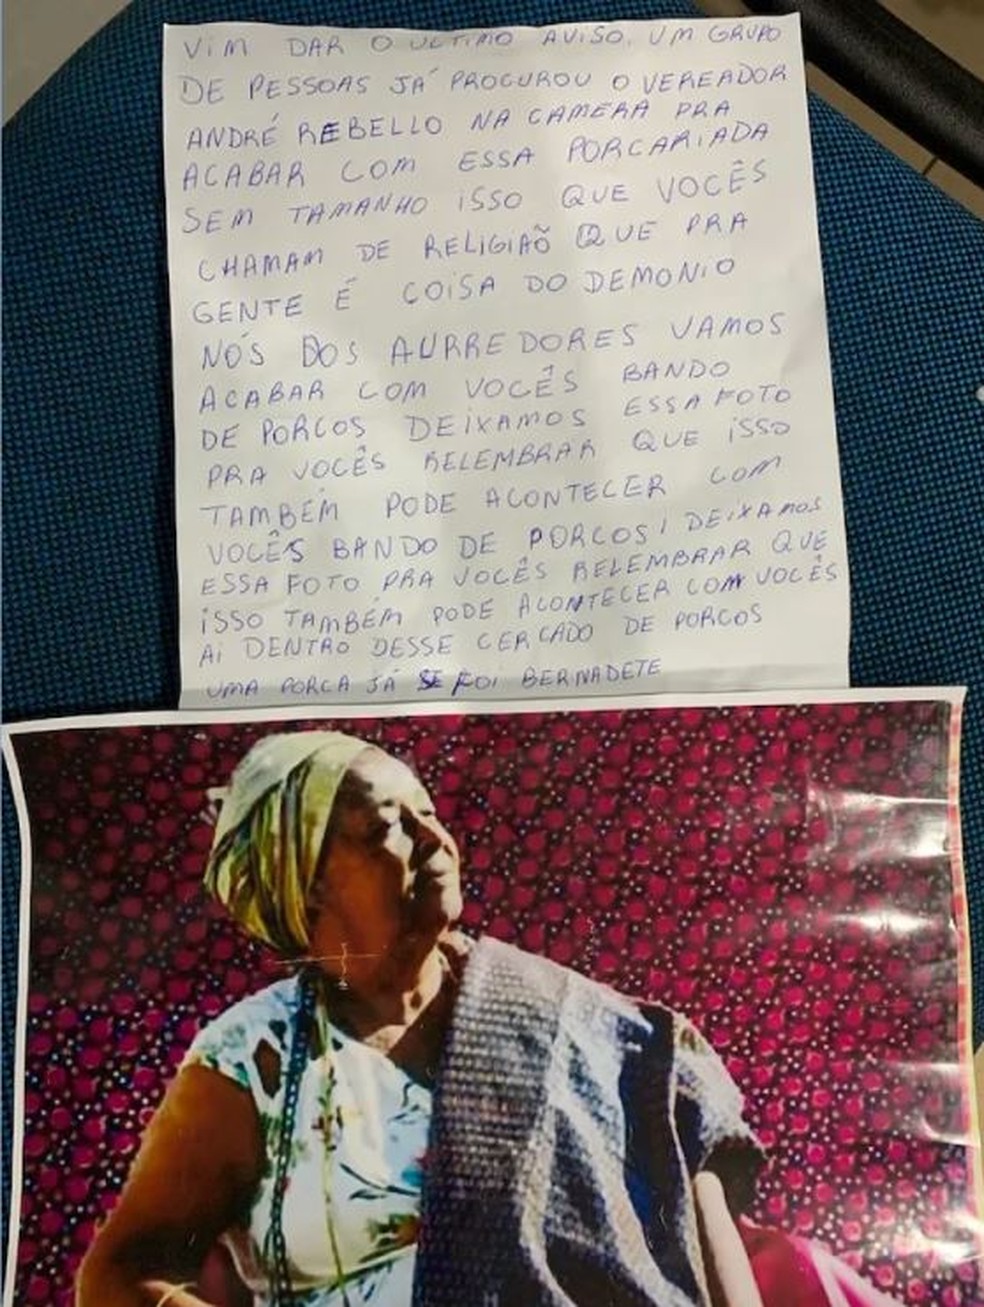 VIM DAR O ULTIMO AVISO. UM GRUPO
DE PESSOAS JÁ PROCUROU O VEREADOR
ANDRÉ REBELLO NA CAMERA PRA
ACABAR COM ESSA PORCARIADA
SEM TAMANHO ISSO QUE VOCÊS
CHAMAM DE RELIGIAÕ QUE PRA
GENTE É COISA DO DEMONIO
NÓS DOS AURREDORES VAMOS
ACABAR COM VOCÊS BANDO
DE PORCOS DEIXAMOS ESSA FOTO
PRA VOCÊS RELEMBRAR QUE ISSO
TAMBÉM PODE ACONTECER COM
VOCÊS BANDO DE PORCOS! DEIXAMOS
ESSA FOTO PRA VOCÊS RELEMBRAR QUE
ISSO TAMBÉM PODE ACONTECER COM VOCÊS
AI DENTRO DESSE CERCADO DE PORCOS
UMA PORCA JÁ SE FOI BERNADETE